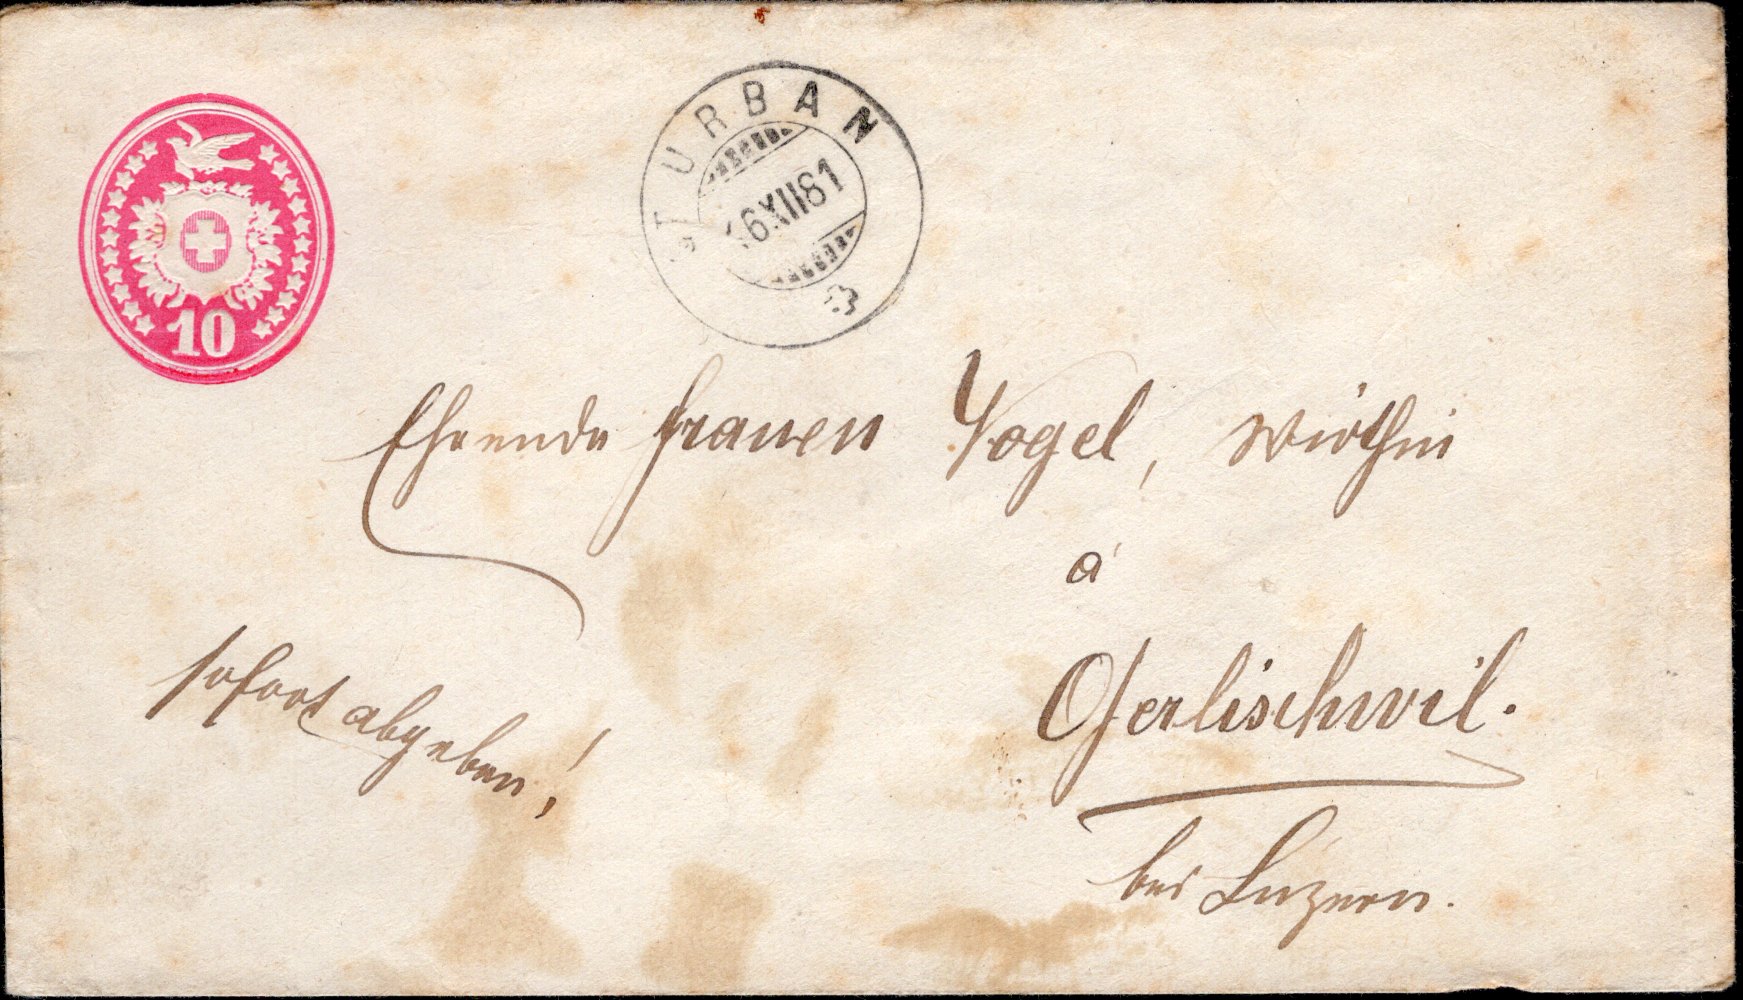 10
ST. URBAN
6XII81
Ehrende Frauen Vogel, Wirthin
à
Gerlischwil.
bei Luzern.
sofort abgeben!